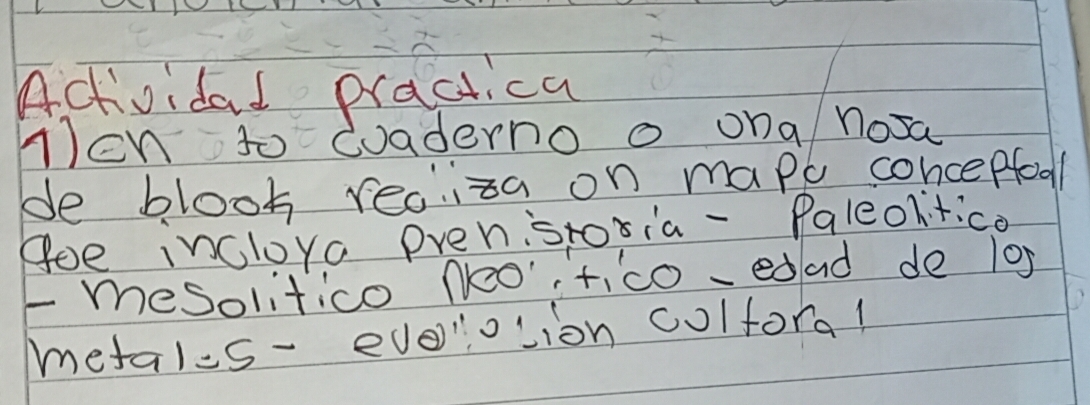 Actividad practica
1) en tu cuaderno o una hoja
de block realiza un mapa conceptual
que incluya prehistoria - Paleolitico
- mesolitico neolitico - edad de los
metales - evolucion cultural